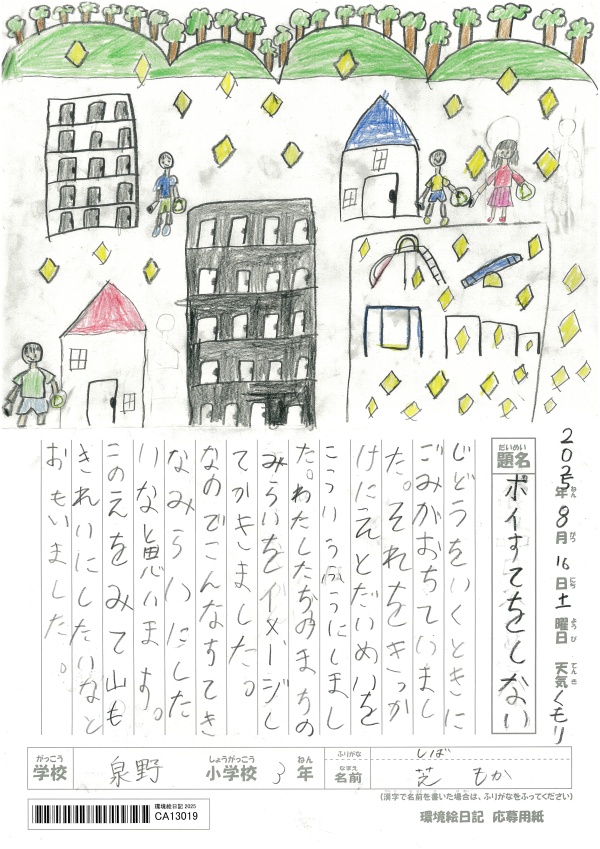 2025年8月16日土曜日 天気くもり
ねん がつ にち ようび てんき
だいめい
題名 ポイすてをしない
じどうをいくときに
ごみがおちていまし
た。それをきっか
けにえとだいめいを
こういうふうにしまし
た。わたしたちのまちの
みらいをイメージし
てかきました。
なのでこんなすてき
なみらいにした
いなと思います。
このえをみて山も
きれいにしたいなと
おもいました。
がっこう しょうがっこう ねん
学校 泉野 小学校 3年
ふりがな しば
なまえ
名前 芝 もか
(漢字で名前を書いた場合は、ふりがなをふってください)
環境絵日記 2025
CA13019
環境絵日記 応募用紙